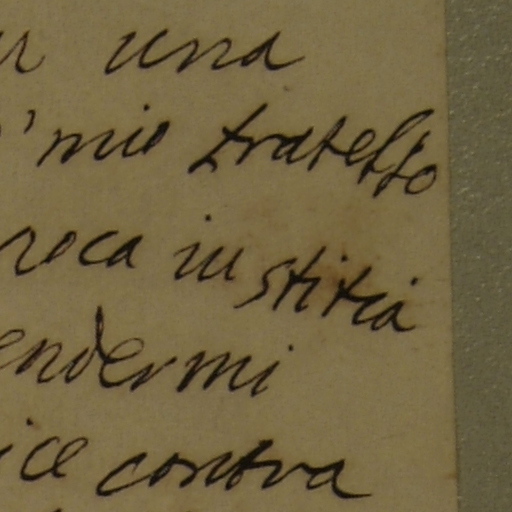 una
mio fratello
iustitia
endermi
ice contra